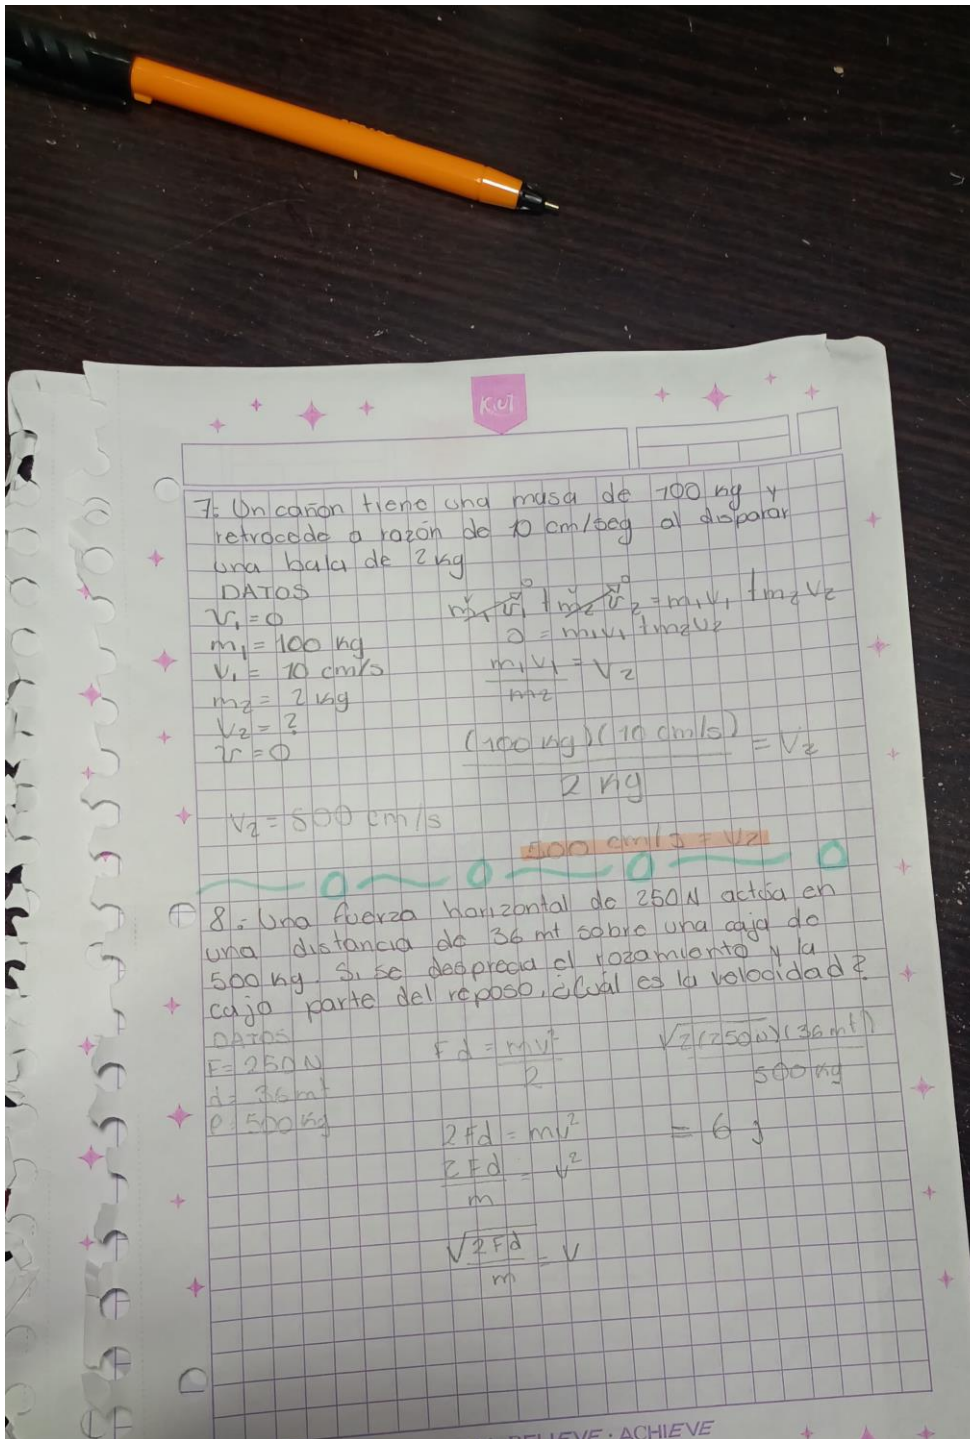 KIUT
7. Un cañon tiene una masa de 100 kg y
retrocede a razón de 10 cm/seg al disparar
una bala de 2 kg
DATOS
v₁ = 0
m₁ = 100 kg
V₁ = 10 cm/s
m₂ = 2 kg
V₂ = ?
v = 0
V₂ = 500 cm/s
m₁ v₁ + m₂ v₂ = m₁V₁ + m₂V₂
0 = m₁V₁ + m₂V₂
m₁V₁ / m₂ = V₂
(100 kg)(10 cm/s) / 2 kg = V₂
500 cm/s = V₂
8. Una fuerza horizontal de 250N actúa en
una distancia de 36 mt sobre una caja de
500 kg. Si se desprecia el rozamiento y la
caja parte del reposo, ¿Cuál es la velocidad?
DATOS
F = 250 N
d = 36 mt
P = 500 kg
Fd = mv² / 2
2Fd = mv²
2Fd / m = v²
√2Fd / m = V
√2(250N)(36mt) / 500 kg
= 6 J
BELIEVE · ACHIEVE